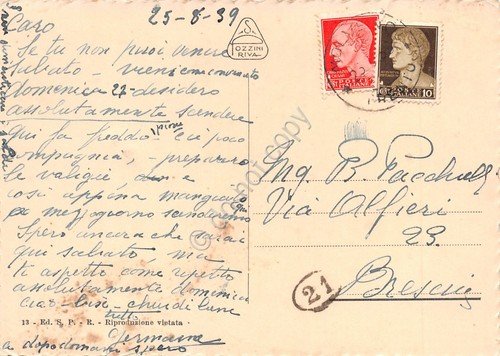 25-8-39
Caro
Se tu non puoi venire
sabato - vieni
domenica 27 - desidero
assolutamente scendere
qui fa freddo, piove e c'è poca
compagnia, - preparerò
le valigie
così appena mangiato
a mezzogiorno scenderemo
Spero ancora che sarai
qui sabato ma
ti aspetto come ripeto
assolutamente domenica
ciao - baci - chiudi bene
tutto
Germana
a dopodomani spero
TOZZINI
RIVA
10
Ing. B.
Via Alfieri
23.
Brescia
21
13 - Ed. S. P. - E. - Riproduzione vietata